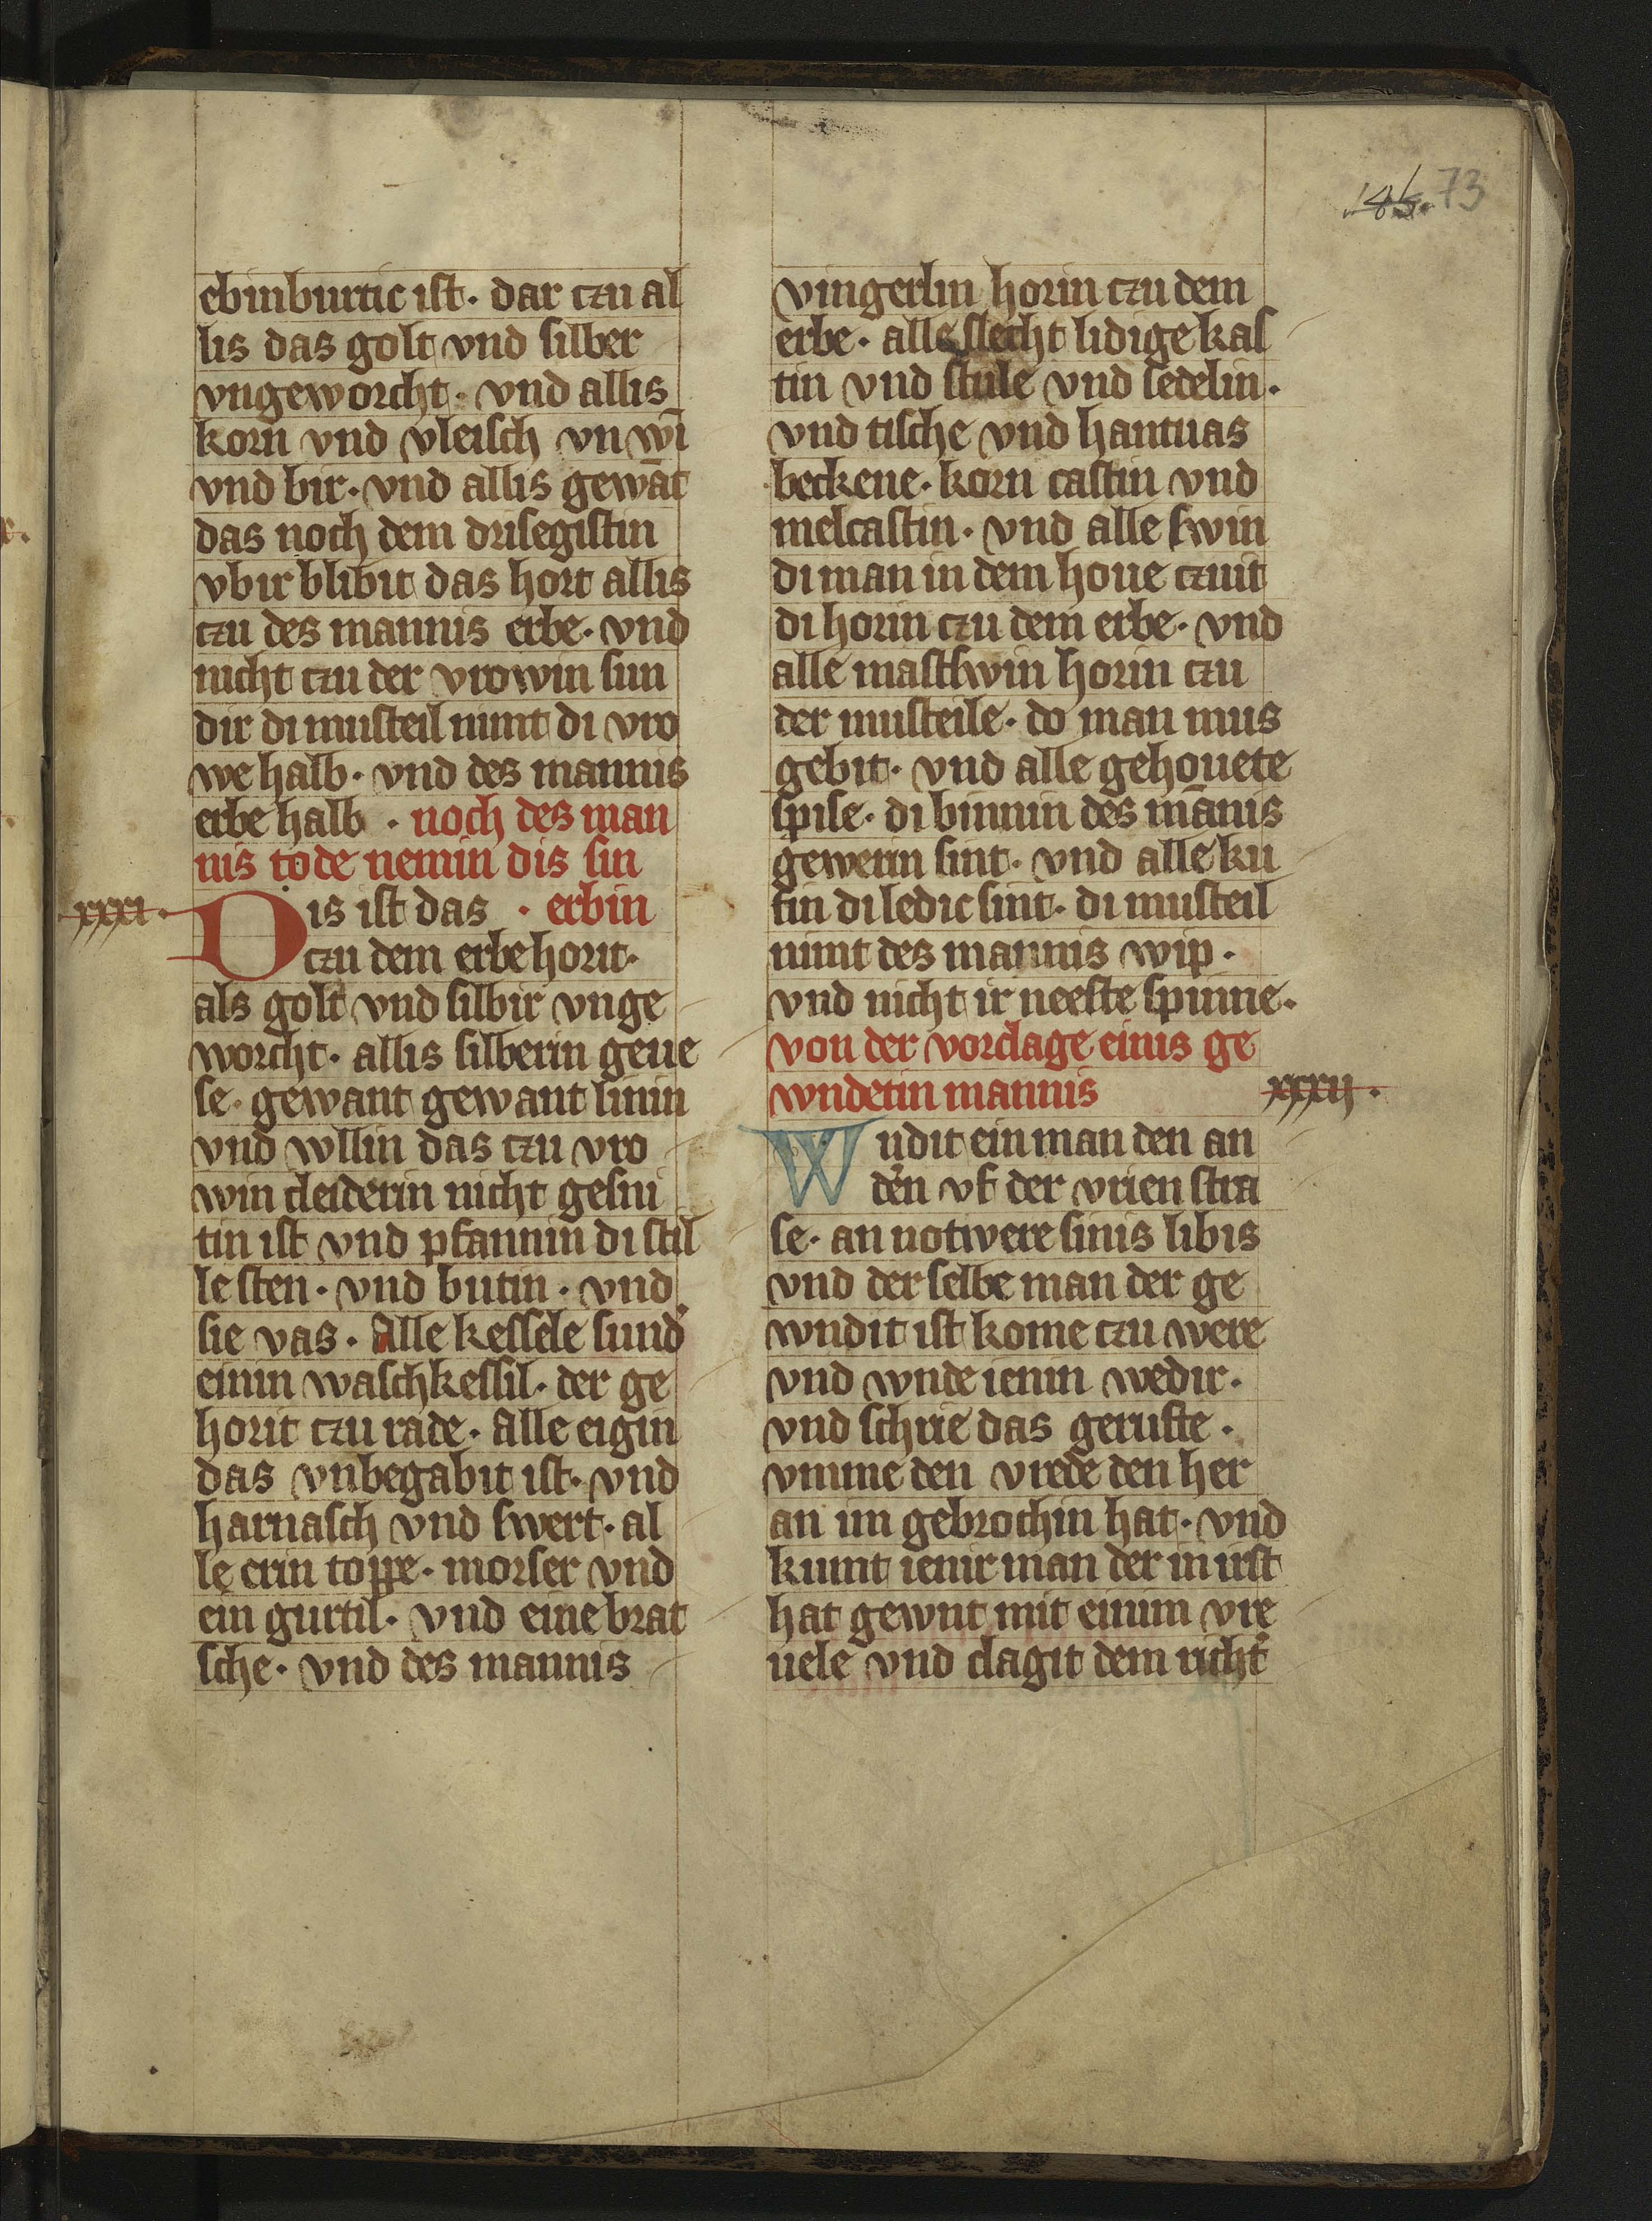 145. 73
ebinburtic ist · dar czu al
lis das golt vnd silber
vngeworcht · vnd allis
korn vnd vleisch vn wī
vnd bir · vnd allis gewāt
das noch dem drisegistin
vbir blibit das hort allis
czu des mannis erbe · vnd
nicht czu der vrowin sun
dir di musteil nimt di vro
we halb · vnd des mannis
erbe halb · noch des man
nis tode nemin dis sin
xxxi ·
Dis ist das · erbin
czu dem erbe horit ·
als golt vnd silbir vnge
worcht · allis silberin geue
se · gewant gewant linin
vnd wllin das czu vro
win cleiderin nicht gesni
tin ist vnd pfannin di stil
le sten · vnd butin · vnd
sie vas · Alle kessele sund᾽
einin waschkessil · der ge
horit czu rade · Alle eigin
das vnbegabit ist · vnd
harnasch vnd swert · al
le erin toppe · morser vnd
ein gurtil · vnd eine brat
sche · vnd des mannis
vingerlin horin czu dem
erbe · alle slecht lidige kas
tin vnd stule vnd sedelin ·
vnd tische vnd hantuas
beckene · korn castin vnd
melcastin · vnd alle swin
di man in dem houe czuit
di horin czu dem erbe · vnd
alle mastswin horin czu
der musteile · do man mus
gebit · vnd alle gehouete
spise · di binnin des mānis
gewerin sint · vnd alle ku
fin di ledic sint · di musteil
nimt des mannis wip ·
vnd nicht ir neeste spinne ·
von der vorclage einis ge
wndetin mannis
xxxii ·
Wndit ein man den an
d᾽en vf der vrien stra
se · an notwere sinis libis
vnd der selbe man der ge
wndit ist kome czu were
vnd wnde ienin wedir ·
vnd schrie das gerufte ·
vmme den vrede den her
an im gebrochin hat · vnd
kumt ienir man der in irst
hat gewnt mit einim vre
uele vnd clagit dem richt᾽